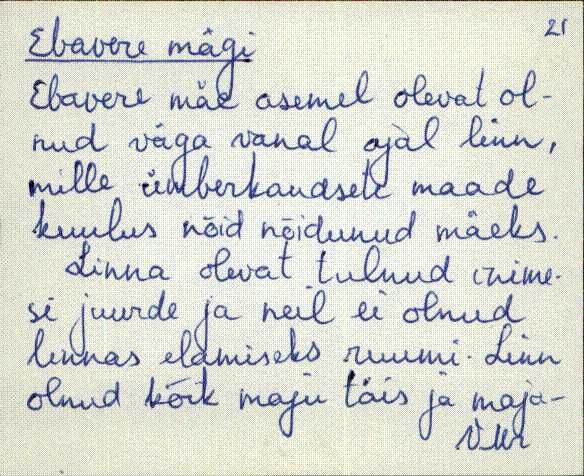 21
Ebavere mägi
Ebavere mäe asemel olevat ol-
nud väga vanal ajal linn,
mille ümberkaudsete maade
kuulus nõid nõidunud mäeks.
Linna olevat tulnud inime-
si juurde ja neil ei olnud
linnas elamiseks ruumi. Linn
olnud kõik maju täis ja maja-